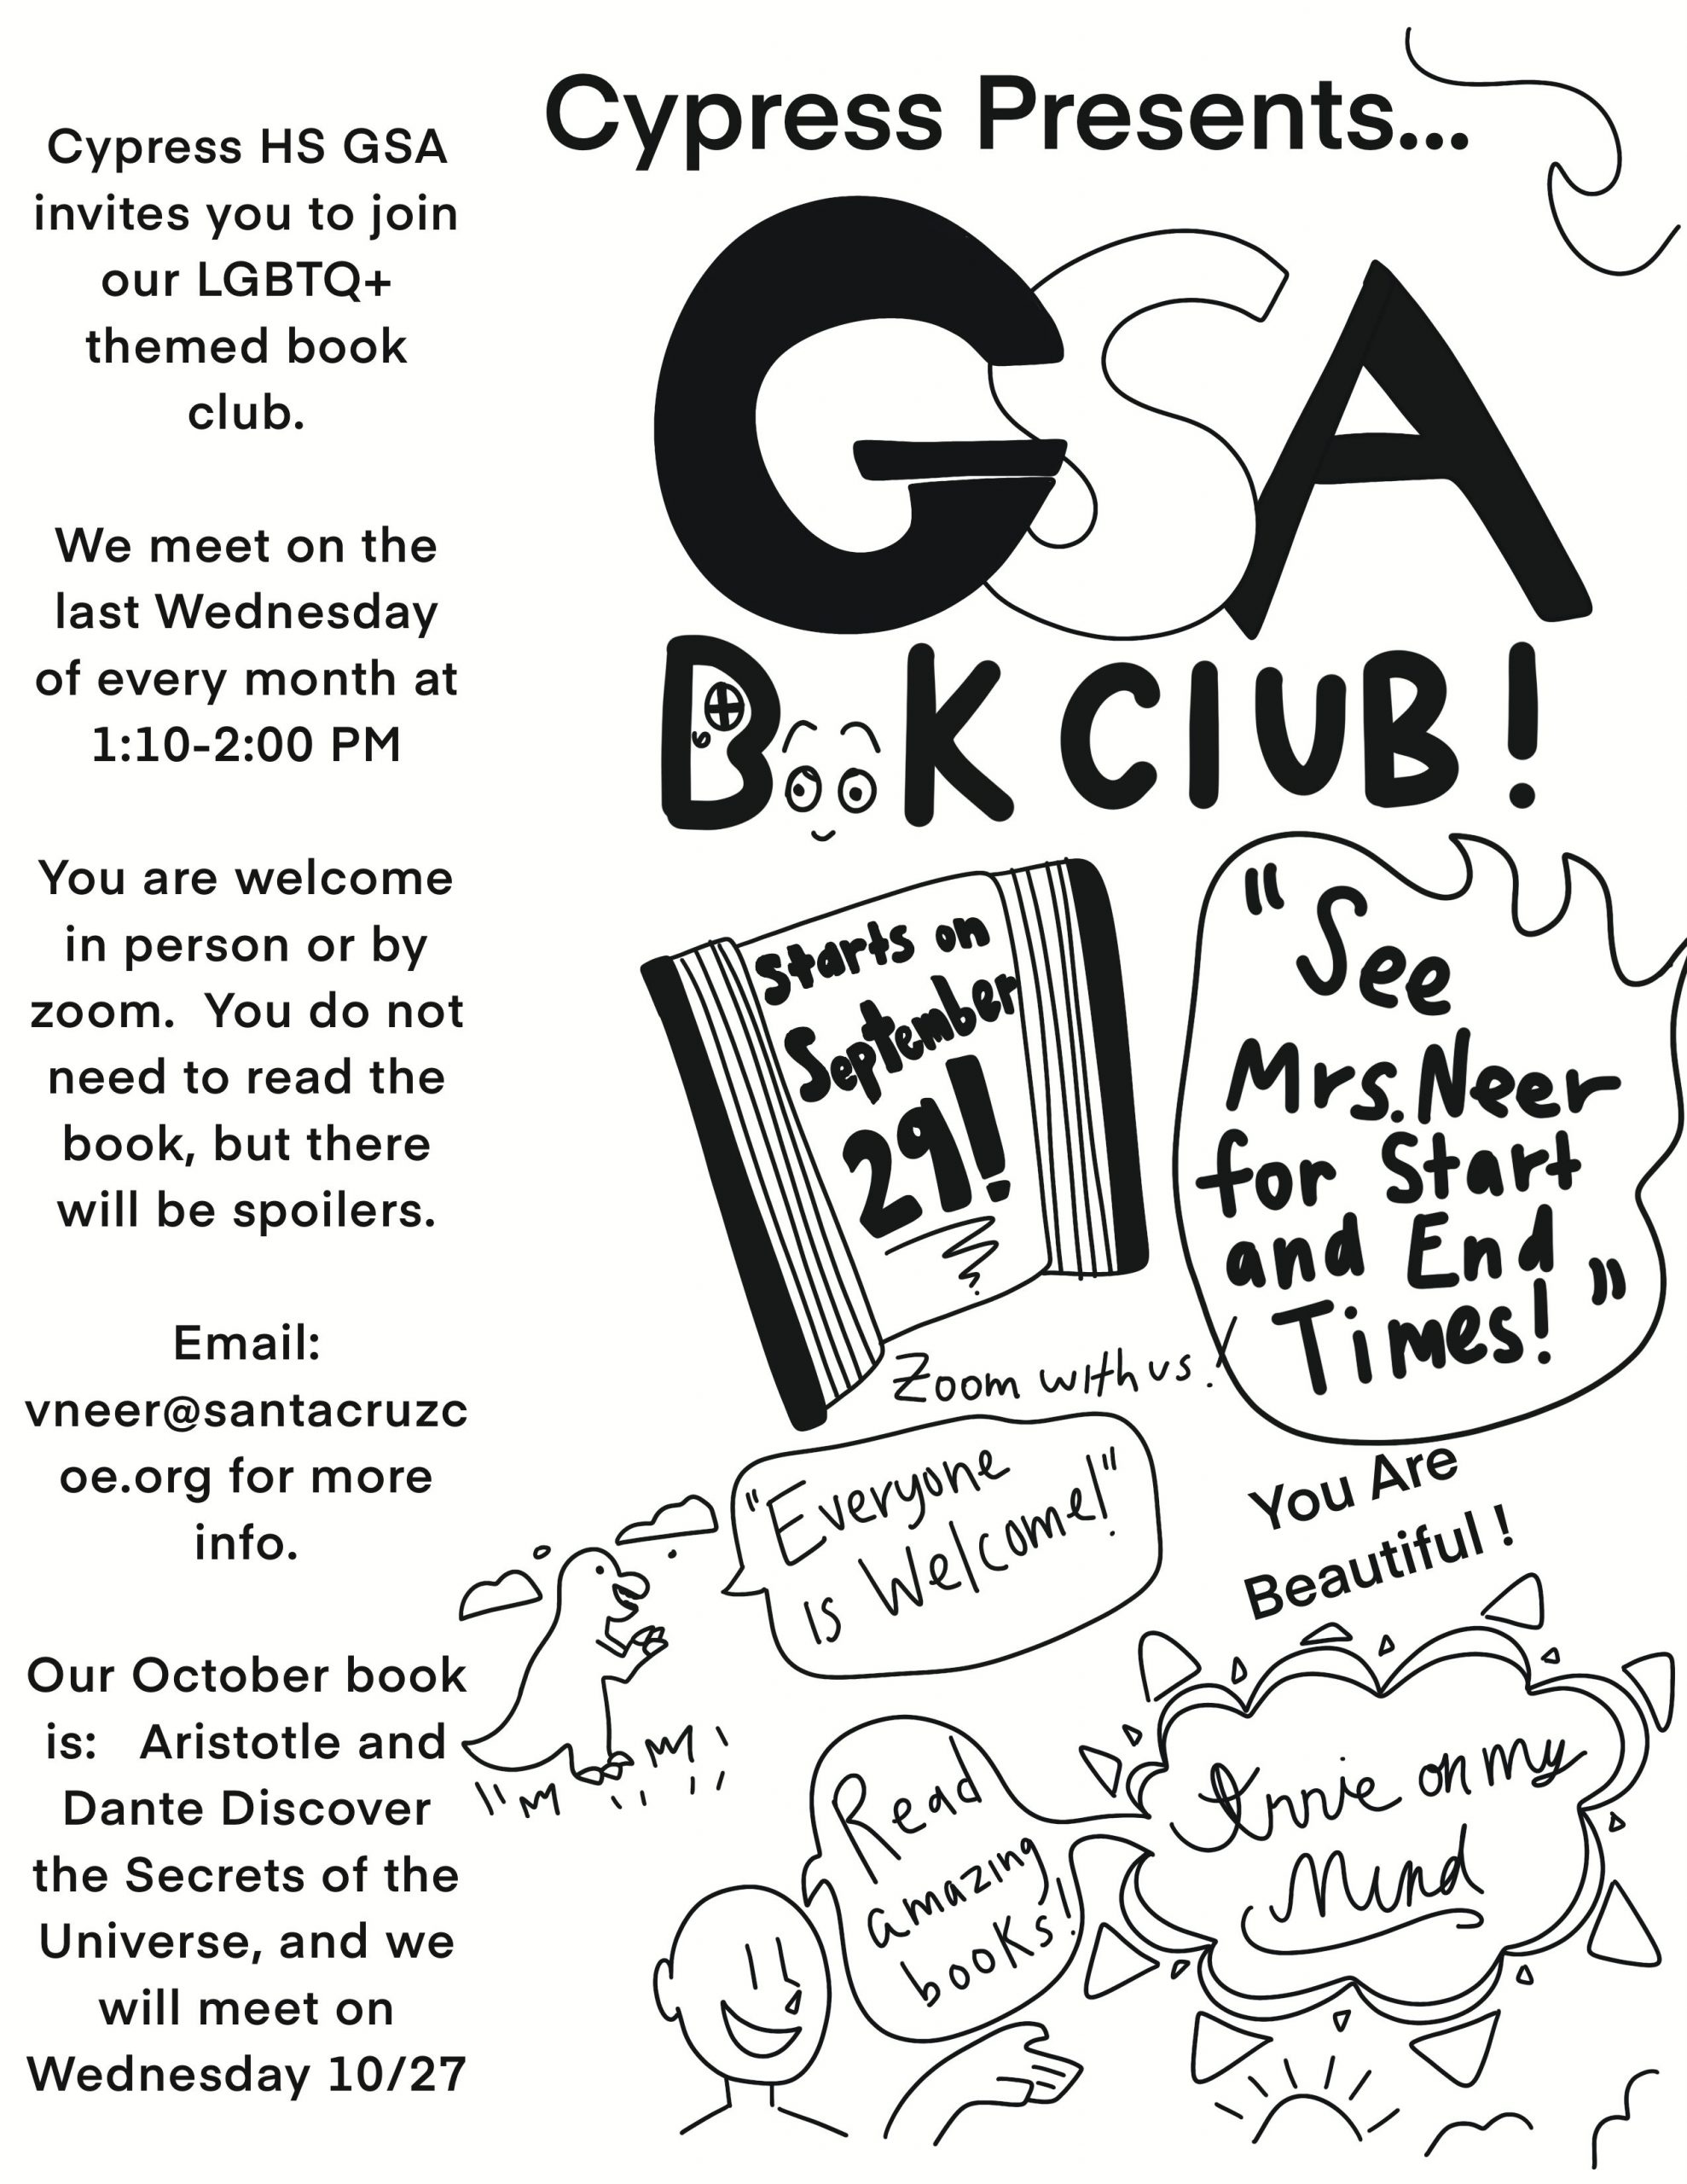 Cypress Presents...
Cypress HS GSA
invites you to join
our LGBTQ+
themed book
club.
We meet on the
last Wednesday
of every month at
1:10-2:00 PM
You are welcome
in person or by
zoom.  You do not
need to read the
book, but there
will be spoilers.
Email:
vneer@santacruzc
oe.org for more
info.
Our October book
is:   Aristotle and
Dante Discover
the Secrets of the
Universe, and we
will meet on
Wednesday 10/27
GSA
BooK ClUB!
Starts on
September
29!
"See
Mrs. Neer
for Start
and End
Times!"
Zoom with us!
"Everyone
is Welcome!"
You Are
Beautiful !
Read
amazing
books!
Annie on my
Mind